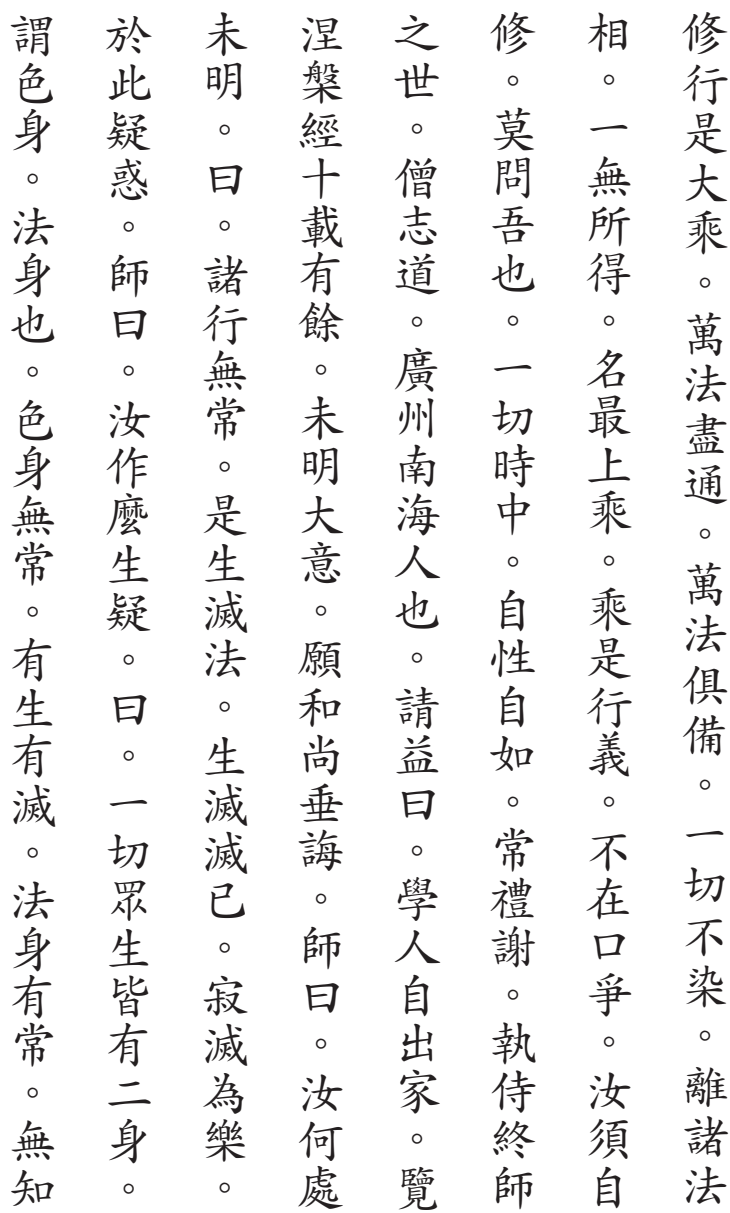 修行是大乘。萬法盡通。萬法俱備。一切不染。離諸法
相。一無所得。名最上乘。乘是行義。不在口爭。汝須自
修。莫問吾也。一切時中。自性自如。常禮謝。執侍終師
之世。僧志道。廣州南海人也。請益曰。學人自出家。覽
涅槃經十載有餘。未明大意。願和尚垂誨。師曰。汝何處
未明。曰。諸行無常。是生滅法。生滅滅已。寂滅為樂。
於此疑惑。師曰。汝作麼生疑。曰。一切眾生皆有二身。
謂色身。法身也。色身無常。有生有滅。法身有常。無知